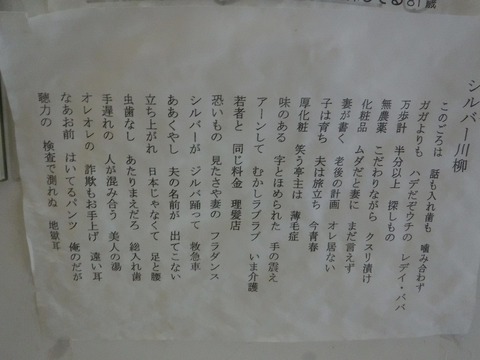 81歳
シルバー川柳
このごろは　話も入れ歯も　噛み合わず
ガガよりも　ハデだぞウチの　レデイ・ババ
万歩計　半分以上　探しもの
無農薬　こだわりながら　クスリ漬け
化粧品　ムダだと妻に　まだ言えず
妻が書く　老後の計画　オレ居ない
子は育ち　夫は旅立ち　今青春
厚化粧　笑う亭主は　薄毛症
味のある　字とほめられた　手の震え
アーンして　むかしラブラブ　いま介護
若者と　同じ料金　理髪店
恐いもの　見たさや妻の　フラダンス
シルバーが　ジルバ踊って　救急車
ああくやし　夫の名前が　出てこない
立ち上がれ　日本じゃなくて　足と腰
虫歯なし　あたりまえだろ　総入れ歯
手遅れの　人が混み合う　美人の湯
オレオレの　詐欺もお手上げ　遠い耳
なあお前　はいてるパンツ　俺のだが
聴力の　検査で測れぬ　地獄耳